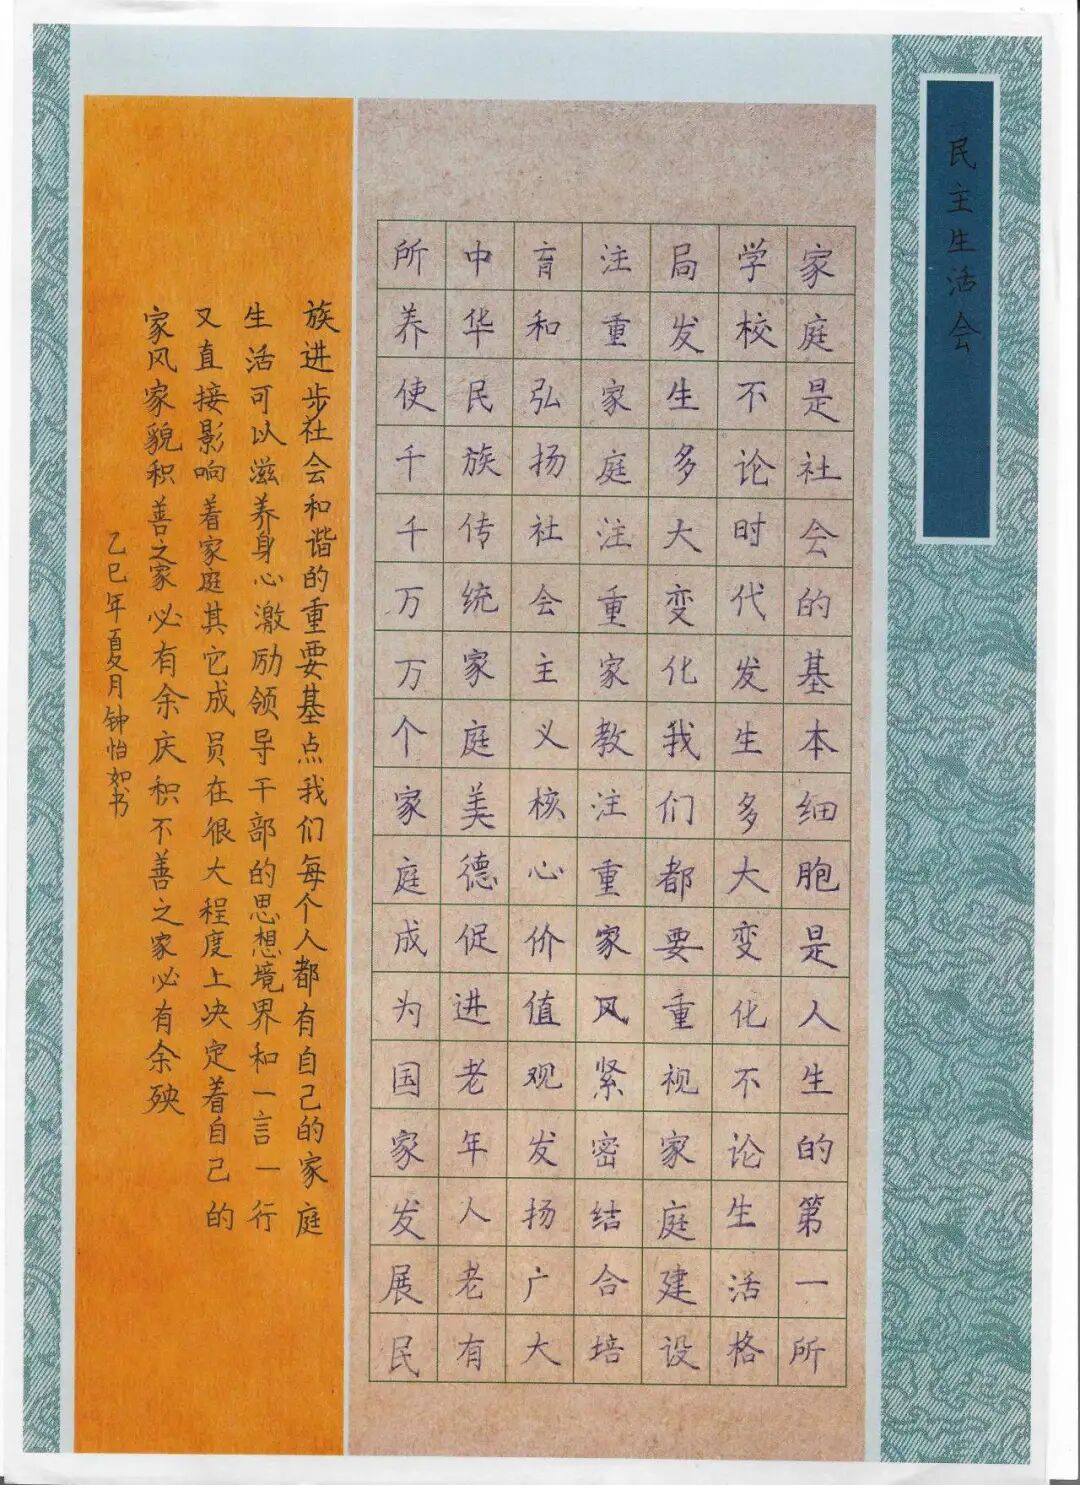 民主生活会
家庭是社会的基本细胞是人生的第一所
学校不论时代发生多大变化不论生活格
局发生多大变化我们都要重视家庭建设
注重家庭注重家教注重家风紧密结合培
育和弘扬社会主义核心价值观发扬广大
中华民族传统家庭美德促进老年人老有
所养使千千万万个家庭成为国家发展民
族进步社会和谐的重要基点我们每个人都有自己的家庭
生活可以滋养身心激励领导干部的思想境界和一言一行
又直接影响着家庭其它成员在很大程度上决定着自己的
家风家貌积善之家必有余庆积不善之家必有余殃
乙巳年夏月钟怡如书